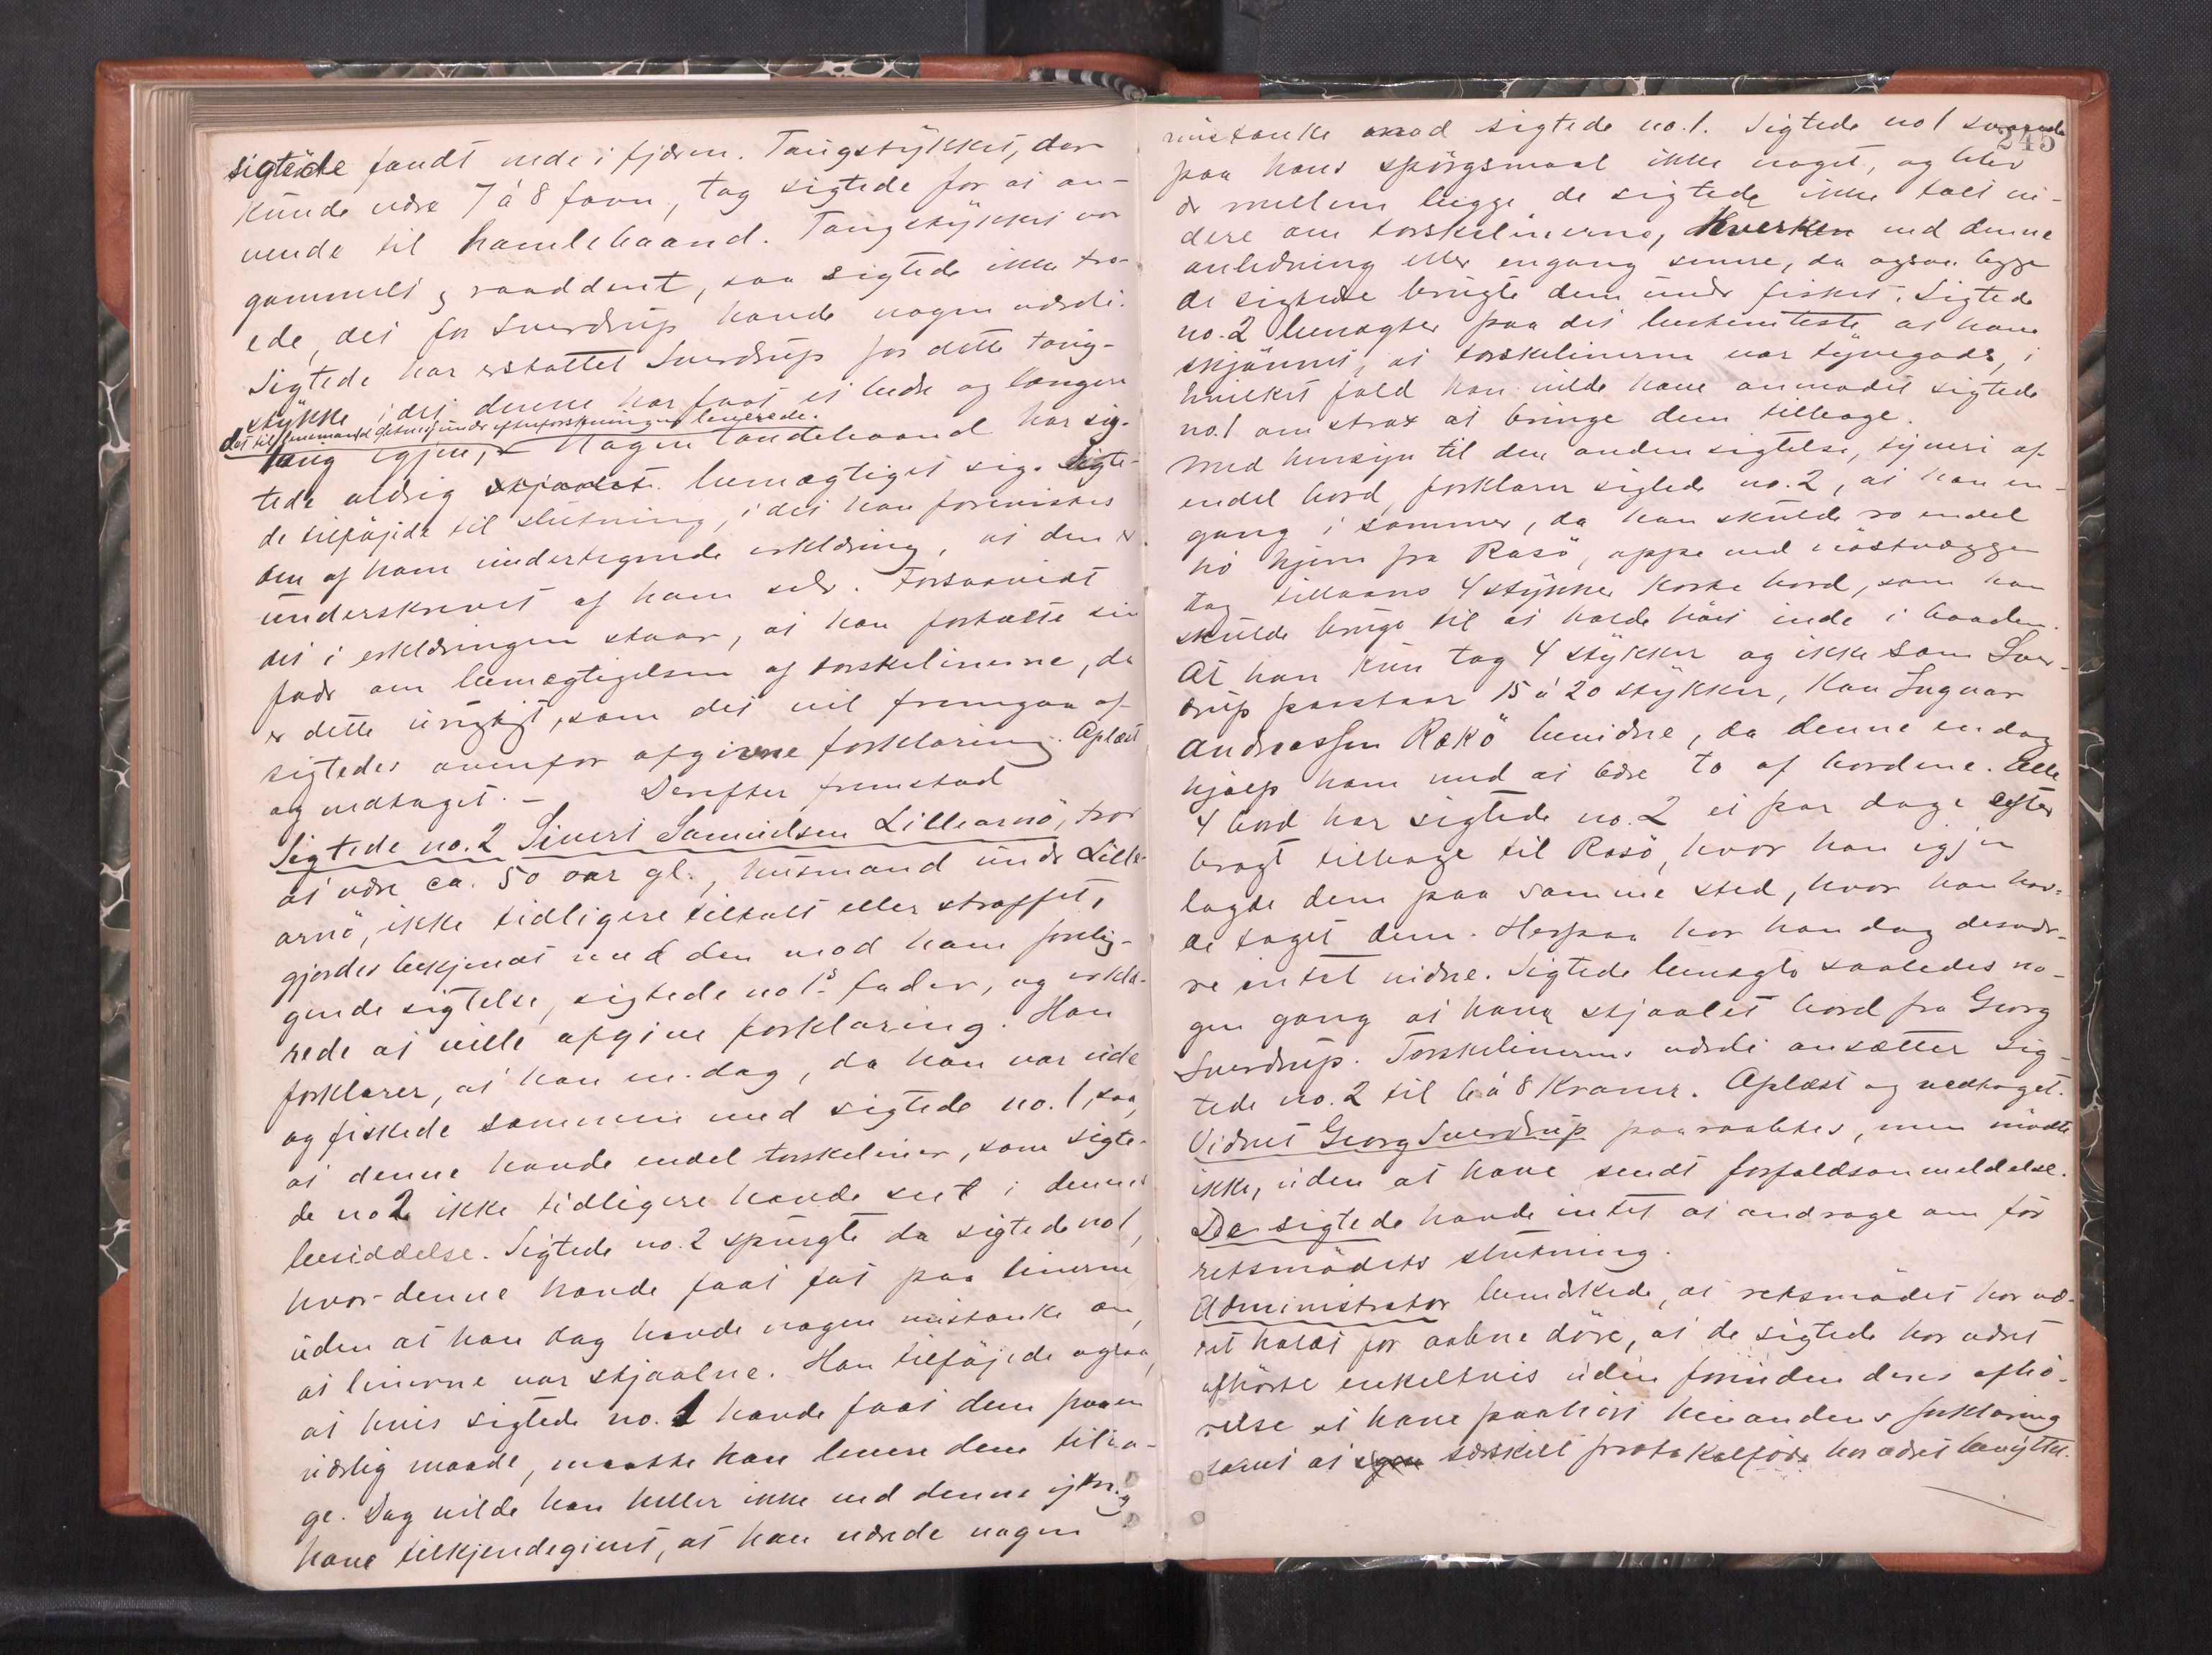 sigtede fandt nede i fjæren. Taugstÿkket, der
kunde være 7 à 8 favn, tog sigtede for at an-
vende til hamlebaand. Taugstÿkket var
gammelt og raaddent, saa sigtede ikke tro-
ede, det for Sverdrup havde nogen værdi.
Sigtede har erstattet Sverdrup for dette taug-
stÿkke, idet denne har faaet et bedre og længere
det til lensmanden under efterforskningen leverede.
taug igjen, Nogen landebaand har sig-
tede aldrig stjaalet. bemægtiget sig. Sigte-
de tilføjede til slutning, idet han forevistes
den af ham undertegnede erklæring, at den er
underskrevet af ham selv. Forsaavidt
det i erklæringen staar, at han fortalte sin
fader om bemægtigelsen af torskelinerne, da
er dette urigtigt, som det vil fremgaa af
sigtedes ovenfor afgivne forklaring. Oplæst
og vedtaget. – Derefter fremstod
Sigtede no. 2 Sivert Samuelsen Lillearnö, tror
at være ca. 50 aar gl., husmand under Lille-
arnö, ikke tidligere tiltalt eller straffet,
gjordes bekjendt med den mod ham forelig-
gende sigtelse, sigtede no 1s fader, og erklæ-
rede at ville afgive forklaring. Han
forklarer, at han en dag, da han var ude
og fiskede sammen med sigtede no. 1, saa,
at denne havde endel torskeliner, som sigte-
de no 2 ikke tidligere havde seet i dennes
besiddelse. Sigtede no. 2 spurgte da sigtede no 1,
hvor denne havde faaet fat paa linerne
uden at han dog havde nogen mistanke om,
at linerne var stjaalne. Han tilføjede ogsaa,
at hvis sigtede no. 1 havde faaet dem paa en
uærlig maade, maatte han levere dem tilba-
ge. Dog vilde han heller ikke ved denne ytring
have tilkjendegivet, at han nærede nogen
245
mistanke mod sigtede no. 1. Sigtede no 1 svarede
paa hans spørgsmaal ikke noget, og blev
der mellem begge de sigtede ikke talt vi-
dere om torskelinerne, hverken ved denne
anledning eller engang senere, da ogsaa begge
de sigtede brugte dem under fisket. Sigtede
no. 2 benægter paa det bestemteste at have
skjønnet, at torskelinerne var tÿvegods, i
hvilket fald han vilde have anmodet sigtede
no. 1 om strax at bringe dem tilbage.
Med hensyn til den anden sigtelse, tÿveri af
endel bord, forklarer sigtede no. 2, at han en-
gang i sommer, da han skulde ro endel
hö hjem fra Rosö, oppe ved nöstvæggen
tog tillaans 4 stÿkker korte bord, som han
skulde bruge til at holde höet inde i baaden.
At han kun tog 4 stÿkker og ikke som Sver-
drup paastaar 15 à 20 stÿkker, kan Ingvar
Andreassen Rokö bevidne, da denne en dag
hjalp ham med at bære to af bordene. Alle
4 bord har sigtede no. 2 et par dage efter
bragt tilbage til Rosö, hvor han igjen
lagde dem paa samme sted, hvor han hav-
de taget dem. Herpaa har han dog desvær-
re intet vidne. Sigtede benægte saaledes no-
gen gang at have stjaalet bord fra Georg
Sverdrup. Torskelinernes værdi ansætter sig-
tede no. 2 til 6 à 8 Kroner. Oplæst og vedtaget.
Vidnet Georg Sverdrup paaraabtes, men mødte
ikke, uden at have sendt forfaldsanmeldelse.
De sigtede havde intet at andrage om för
retsmødets slutning.
Administrator bemærkede, at retsmødet har væ-
ret holdt for aabne döre, at de sigtede har været
afhørte enkeltvis uden forinden deres afhö-
relse at have paahört hinandens forklaring
samt at særskilt protokolförer har været benÿttet.